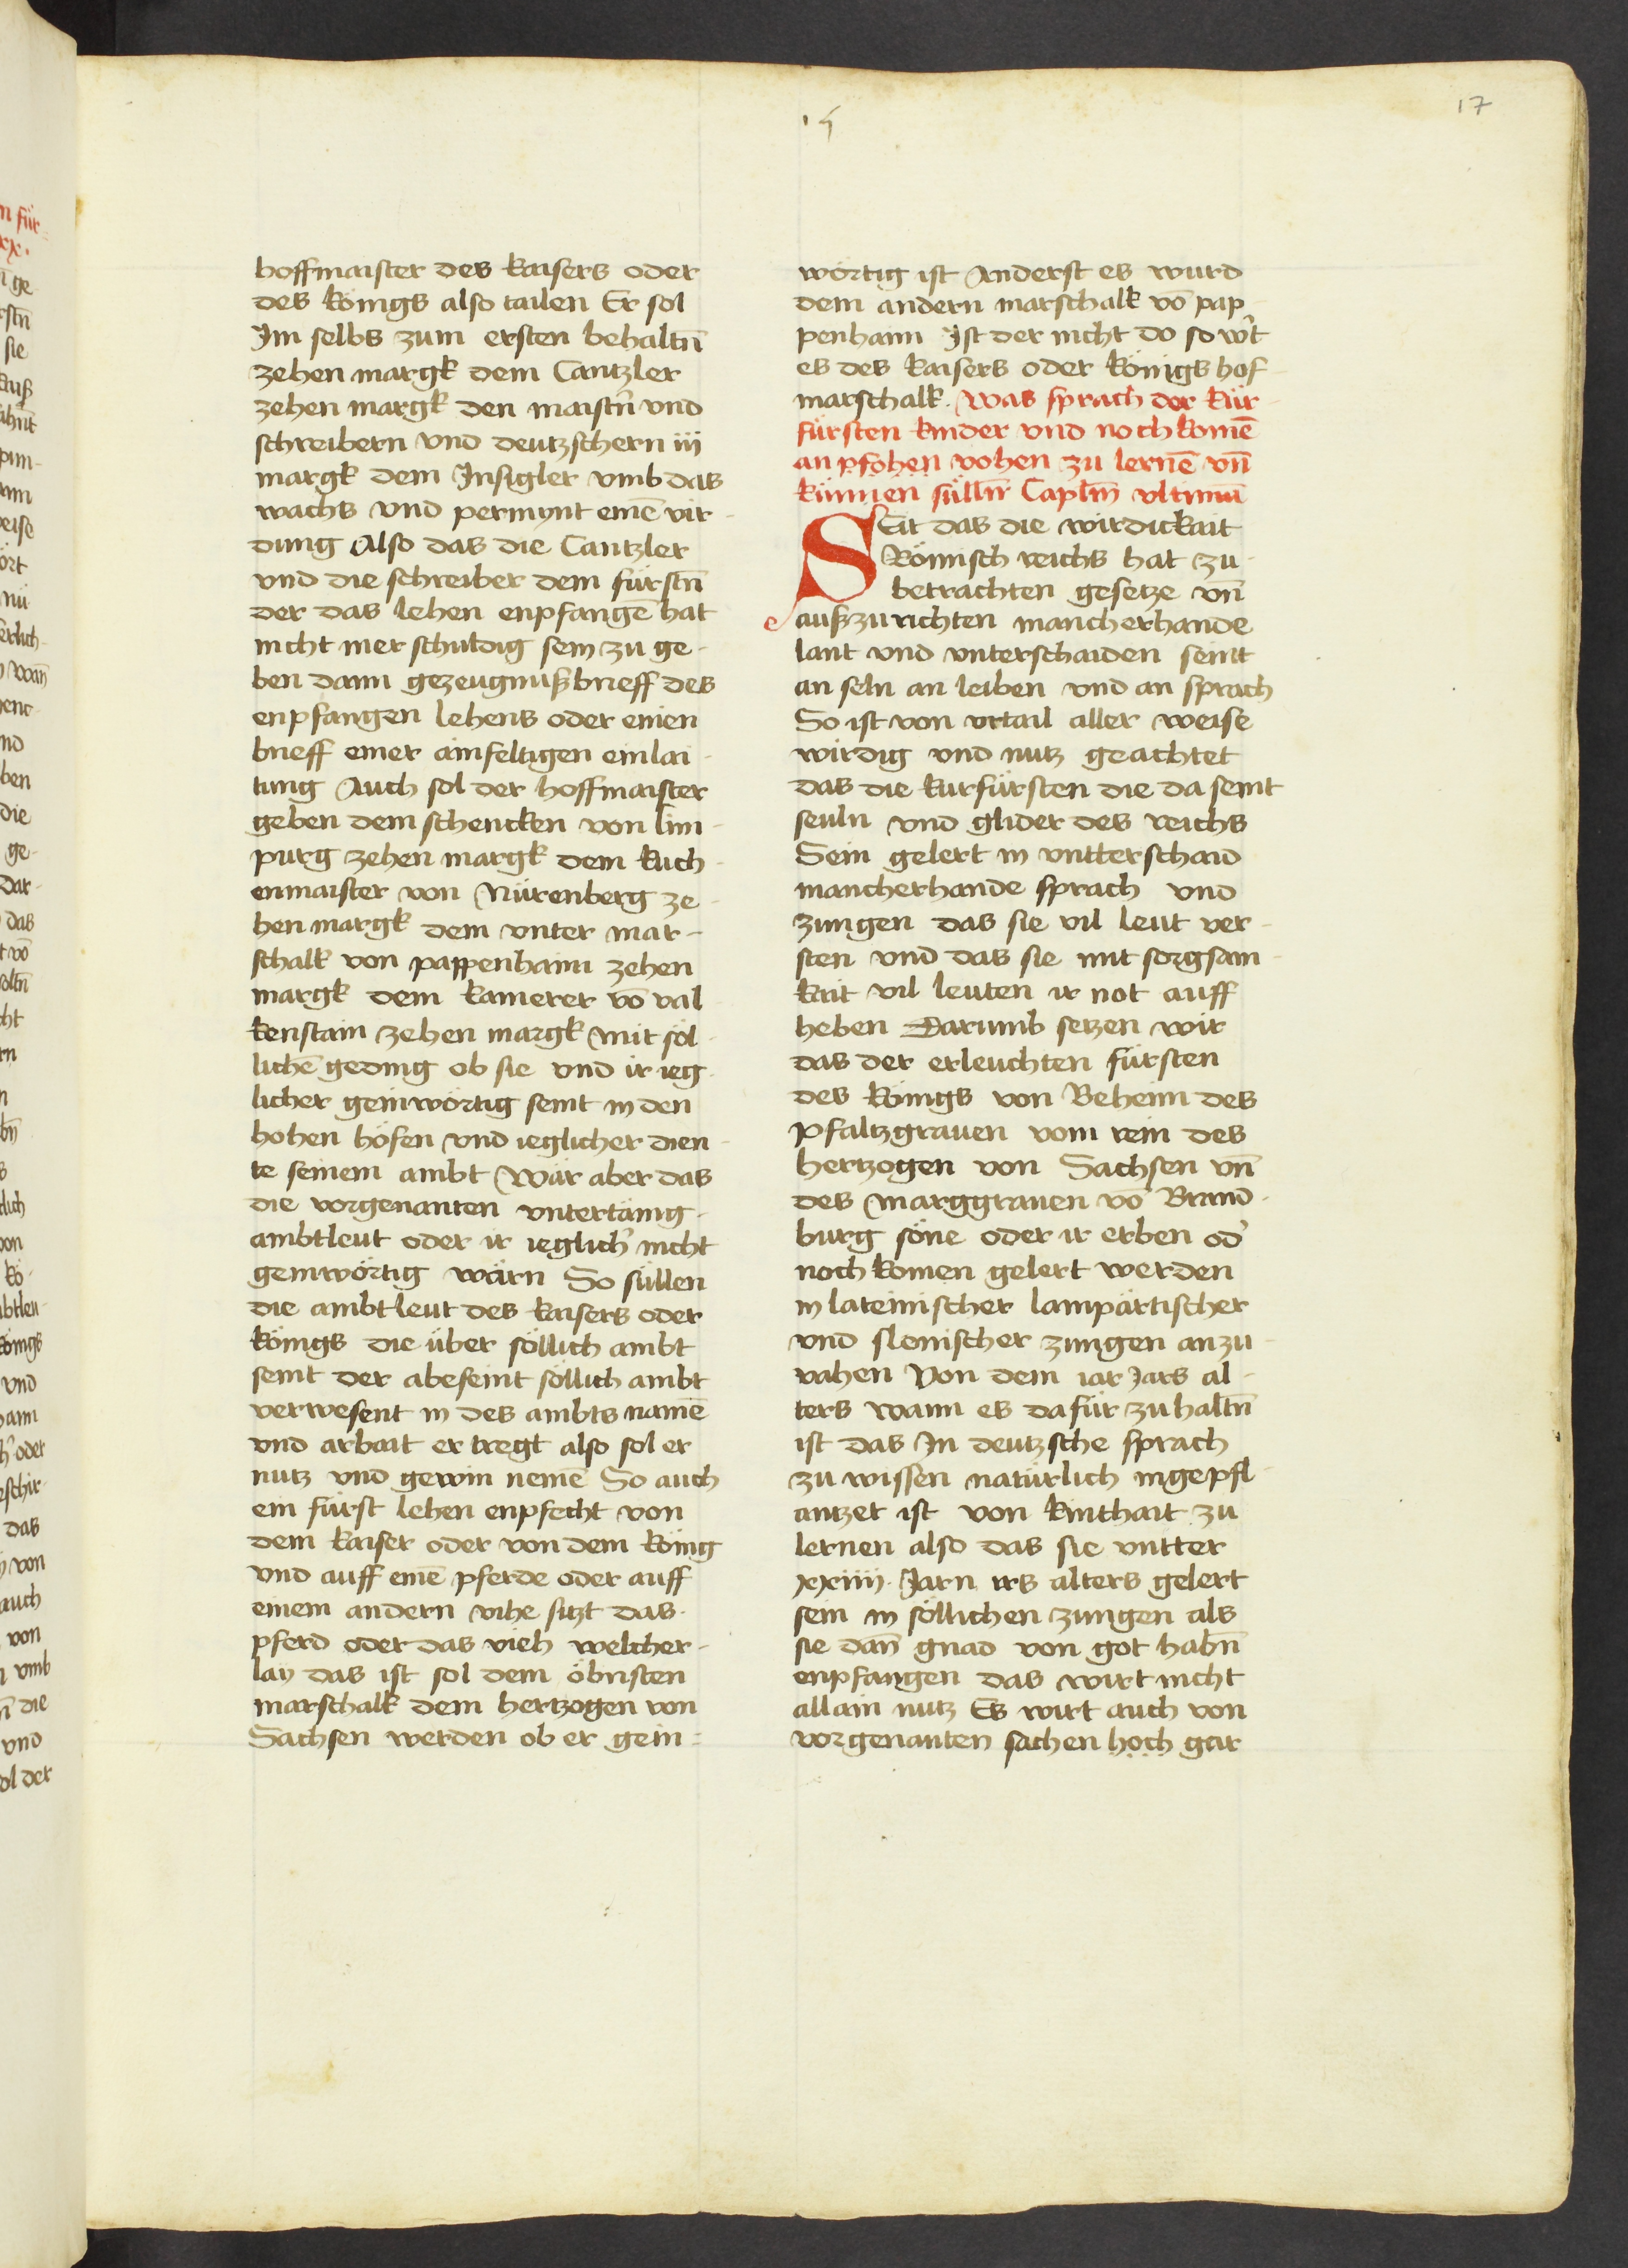 15
17
hoffmaister des kaisers oder
des königs also tailen Er sol
Im selbs zum ersten behaltn̄
zehen margk dem Cantzler
zehen margk den maistn̄ vnd
schreibern vnd deutzschern iij
margk dem Insigler vmb das
wachs vnd permynt einē vir-
dung Also das die Cantzler
vnd die schreiber dem fürstn̄
der das lehen enpfangē hat
nicht mer schuldig sein zu ge-
ben dann gezeugnuß brieff des
enpfangen lehens oder einen
brieff einer ainfeltigen einlai-
tung Auch sol der hoffmaister
geben dem schencken von lim-
purg zehen margk dem kuch-
enmaister von Nürenberg ze-
hen margk dem vnter mar-
schalk von pappenhaim zehen
margk dem kamerer vō val-
kenstain zehen margk mit söl-
lichē geding ob sie vnd ir ieg-
licher geinwörtig seint in den
hohen höfen vnd ieglicher dien-
te seinem ambt Wär aber das
die vorgenanten vntertänig-
ambtleut oder ir ieglich' nicht
geinwörtig wärn So süllen
die ambtleut des kaisers oder
königs die über söllich ambt
seint der abeseint söllich ambt
verwesent in des ambts namē
vnd arbait er tregt also sol er
nutz vnd gewin nemē So auch
ein fürst lehen enpfecht von
dem kaiser oder von dem könig
vnd auff einē pferde oder auff
einem andern vihe sitzt das
pferd oder das vieh welcher-
lay das ist sol dem öbristen
marschalk dem hertzogen von
Sachsen werden ob er gein-
wörtig ist Anderst es wurd
dem andern marschalk vō pap-
penhaim Ist der nicht do so wi't
es des kaisers oder königs hof-
marschalk. Was sprach der kür-
fürsten kinder vnd noch komē
an pfohen vohen zu lernē vn̄
künnen süllnt Caplm̄ vltimū
SEit das die wirdickait
Römisch reichs hat zu-
betrachten gesetze vn̄
außzurichten mancherhande
lant vnd vnterschaiden seint
an seln an leiben vnd an sprach
So ist von vrtail aller weise
wirdig vnd nutz geachtet
das die kurfürsten die da seint
seuln vnd glider des reichs
Sein gelert in vntterschaid
mancherhande sprach vnd
zungen das sie vil leut ver-
sten vnd das sie mit sorgsam-
kait vil leuten ir not auff
heben Darumb setzen wir
das der erleuchten fürsten
des königs von Beheim des
pfaltzgrauen vom rein des
hertzogen von Sachsen vn̄
des Marggrauen vō Brand-
burg söne oder ir erben od'
noch komen gelert werden
in lateinischer lampärtischer
vnd slonischer zungen anzu-
vahen Von dem iar Jars al-
ters wann es dafür zuhaltn̄
ist das In deutzsche sprach
zu wissen natürlich ingepfl-
antzet ist von kinthait zu
lernen also das sie vntter
xxiiij. Jarn irs alters gelert
sein in söllichen zungen als
sie dan̄ gnad von got habn̄
enpfangen das wirt nicht
allain nutz Es wirt auch von
vorgenanten sachen hoch gar